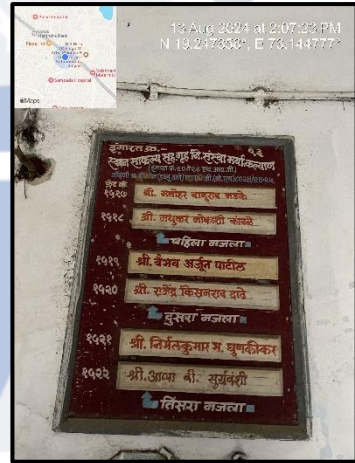 13 Aug 2024 at 2:07:23 PM
N 19.247358°, E 73.144777°
Maps
इमारत क्र.- १३
स्वप्न साफल्य सह.गृह.नि.संस्था मर्या.कल्याण
१५१७
श्री. मनोहर बाबुराव मडके
१५१८
श्री. मधुकर लोकाशी कांबळे
पहिला मजला
१५१९
श्री. वैभव अर्जुन पाटील
१५२०
श्री. राजेंद्र किसनराव दाते
दुसरा मजला
१५२१
श्री. निर्मलकुमार म. घुणकीकर
१५२२
श्री. आप्पा बी. सुर्यवंशी
तिसरा मजला